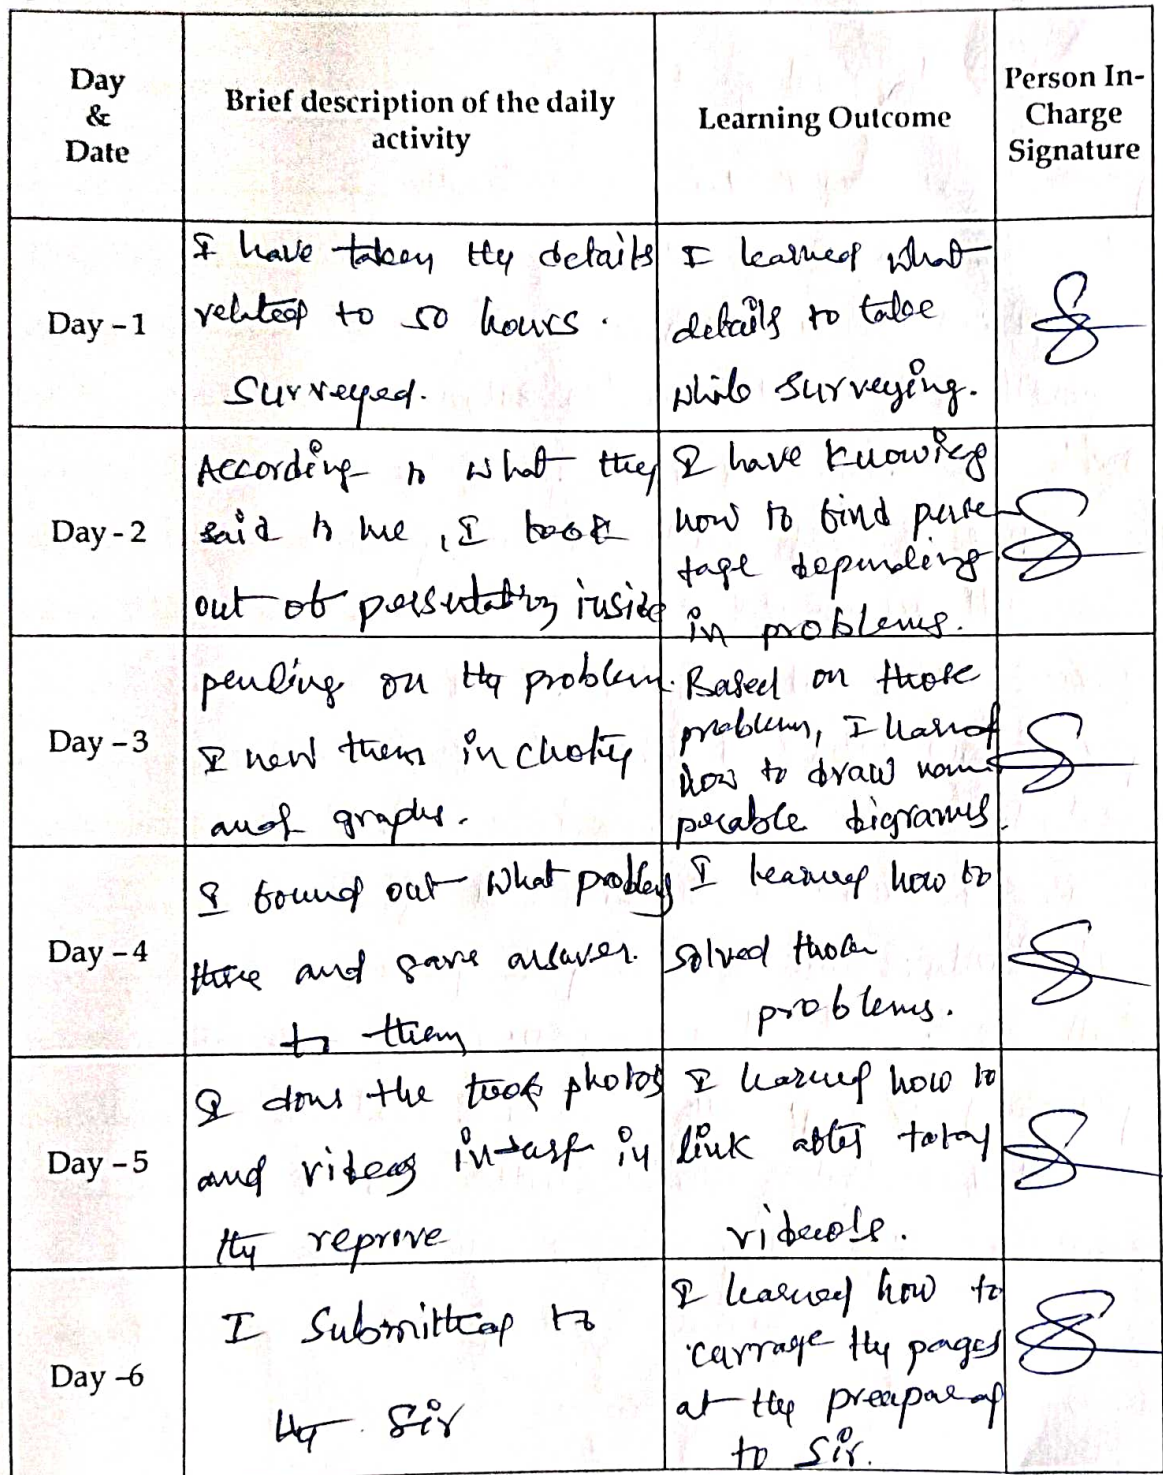 Day
&
Date
Brief description of the daily
activity
Learning Outcome
Person In-
Charge
Signature
Day - 1
I have taken the details
related to 50 hours.
Surveyed.
I learned what
details to take
while surveying.
Day - 2
According to what they
said to me, I took
out of inside
I have knowing
how to find
tage depending
in problems.
Day - 3
pending on the problem.
I new them in
and graphs.
Based on those
problems, I learned
how to draw
digrams.
Day - 4
I found out what problem
there and gave answer.
to them
I learned how to
solved those
problems.
Day - 5
I dons the took photos
and videos in
the
I learned how to
link
Day - 6
I Submitted to
Sir
I learned how to
the pages
at the
to Sir.